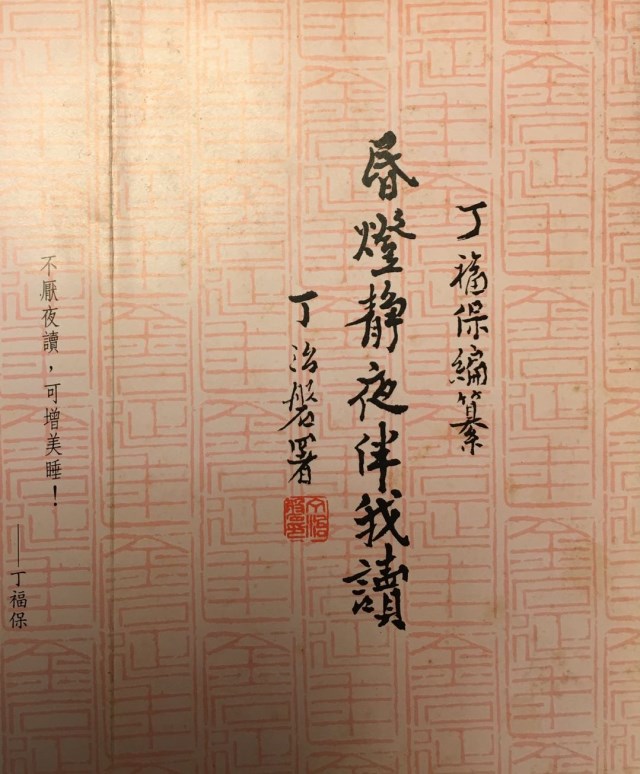 丁福保編纂
昏燈靜夜伴我讀
丁治磐署
不厭夜讀，可增美睡！
——丁福保